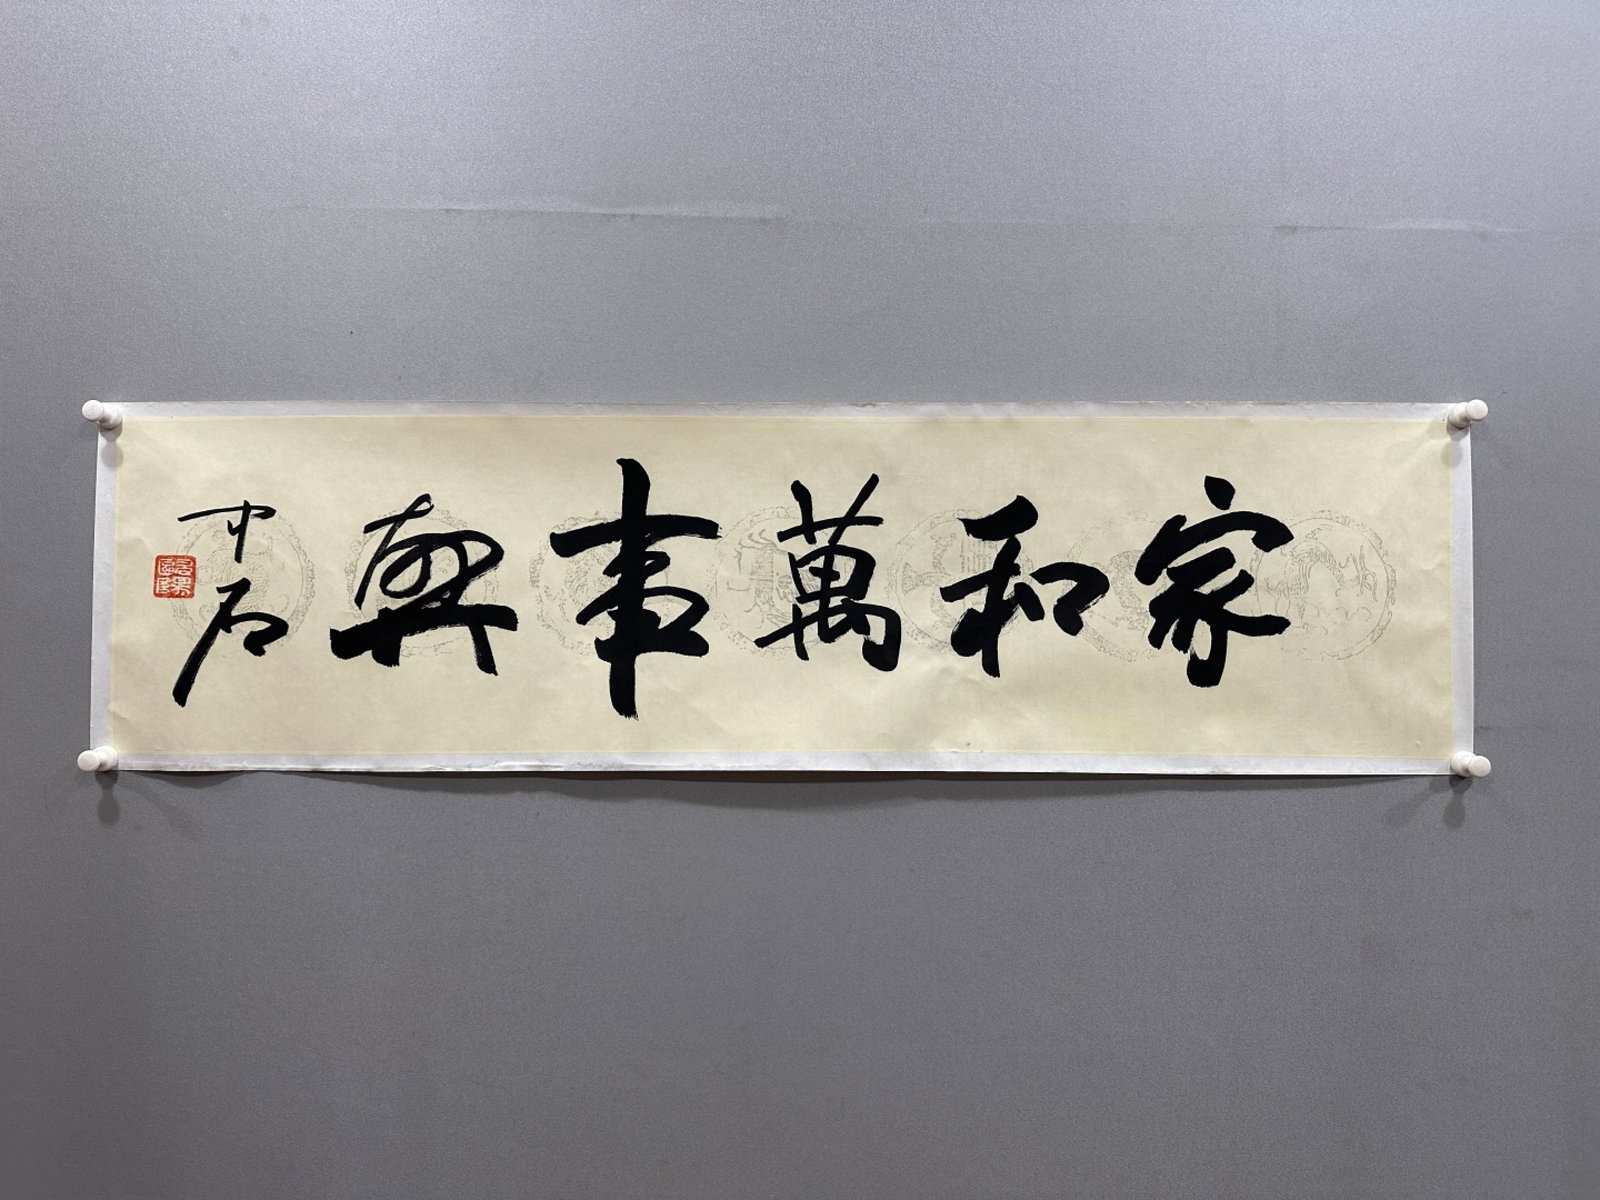 家和萬事興
中石